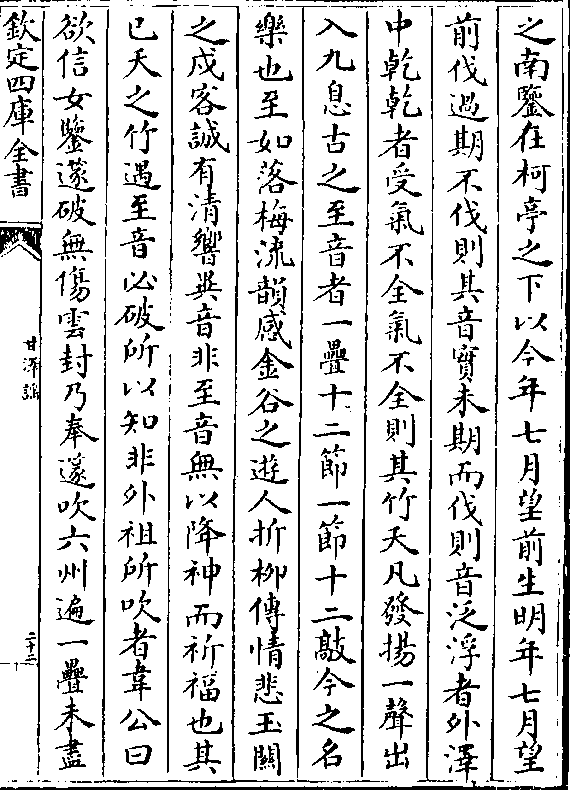 之南鑒在柯亭之下以今年七月望前生明年七月望
前伐過期不伐則其音實未期而伐則音泛浮者外澤
中乾乾者受氣不全氣不全則其竹夭凡發揚一聲出
入九息古之至音者一疊十二節一節十二敲今之名
樂也至如落梅流韻感金谷之遊人折柳傳情悲玉關
之戍客誠有清響異音非至音無以降神而祈福也其
已夭之竹遇至音必破所以知非外祖所吹者韋公曰
欲信女鑒遂破無傷雲封乃奉遂吹六州遍一疊未盡
欽定四庫全書
甘澤謠
二十三